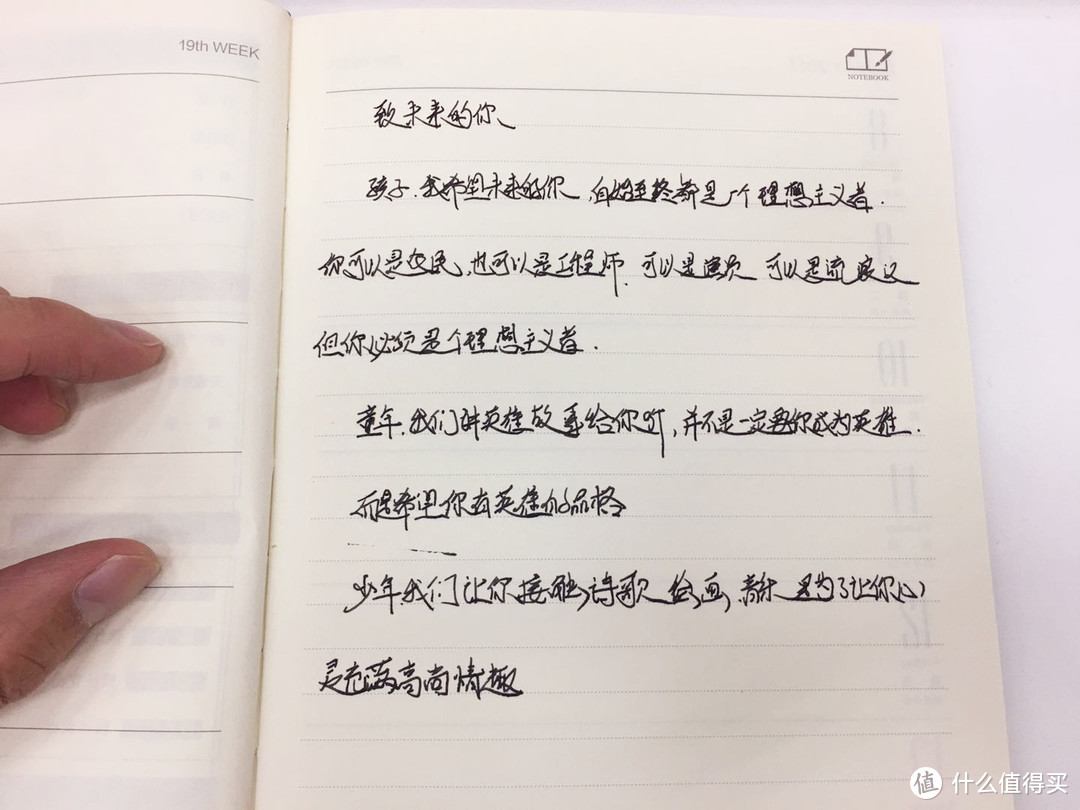 19th WEEK
NOTEBOOK
致未来的你、
孩子.我希望未来的你,自始至终都是一个理想主义者.
你可以是农民,也可以是工程师.可以是演员 可以是流浪汉
但你必须是个理想主义者.
童年.我们讲英雄故事给你听,并不是一定要你成为英雄.
而是希望你有英雄的品格
少年.我们让你接触诗歌 绘画,音乐 是为了让你心
灵充满高尚情趣
值 什么值得买